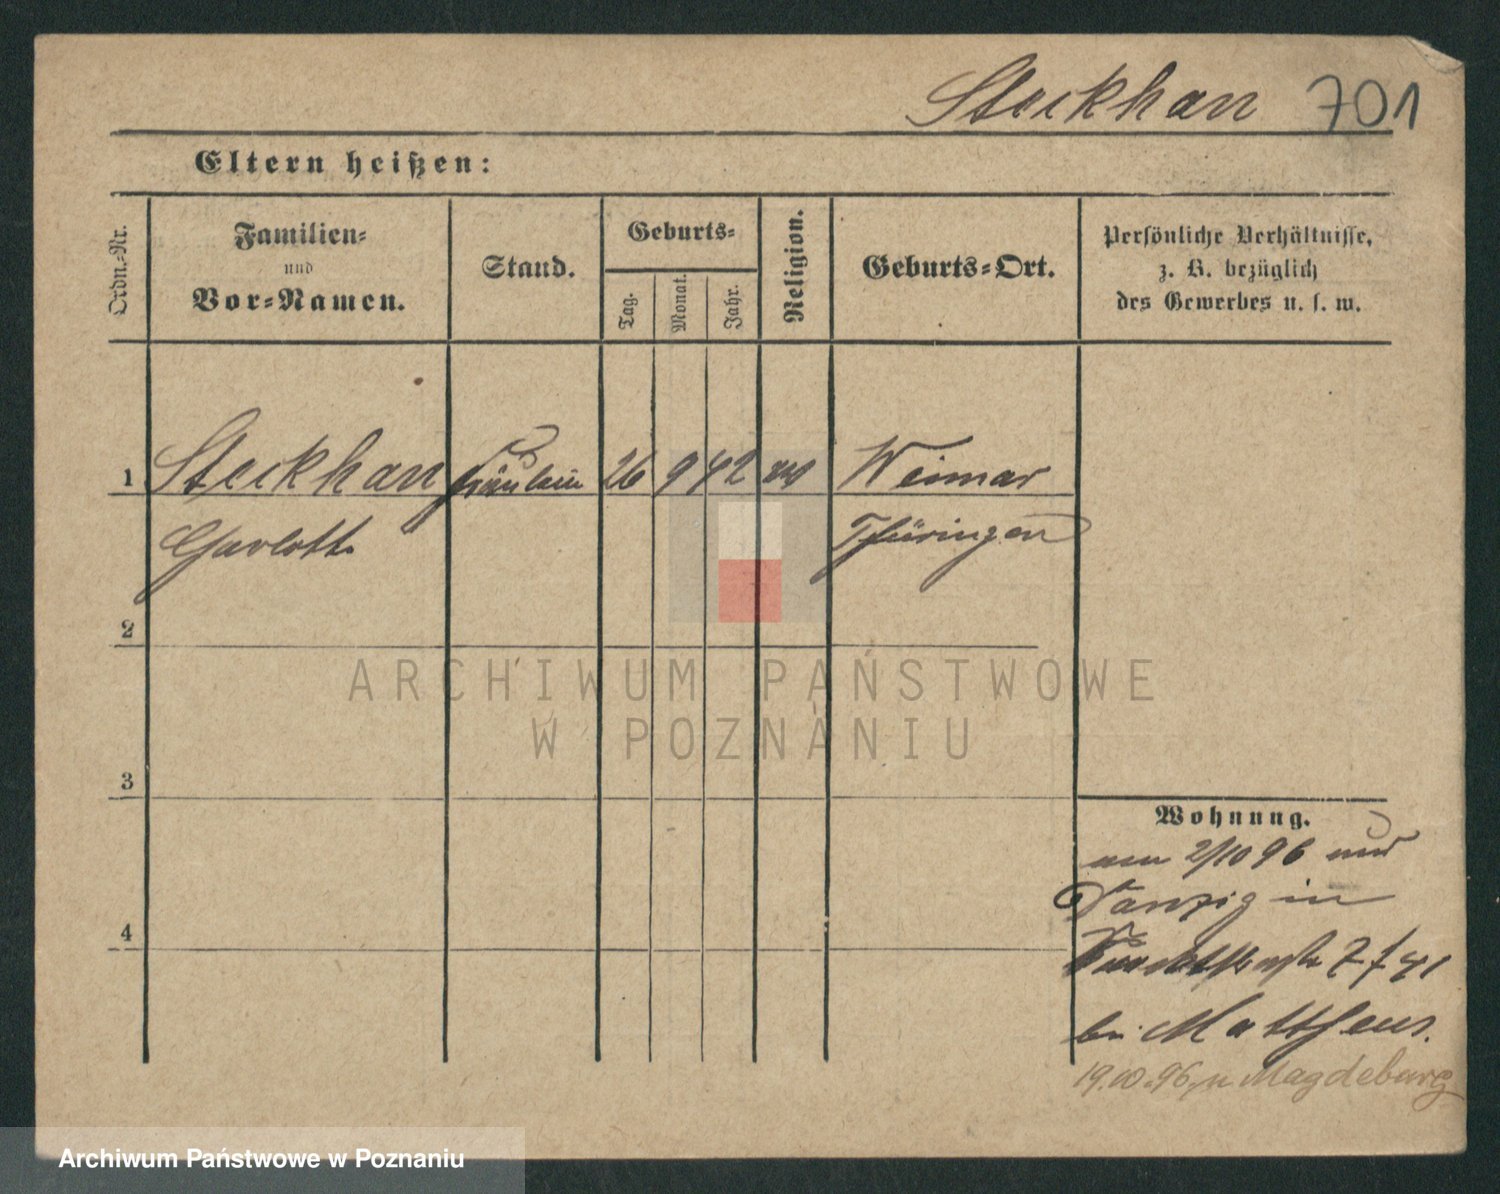 Steckhan 701
Eltern heißen:
Ordn.-Nr.
Familien-
und
Vor-Namen.
Stand.
Geburts-
Tag.
Monat.
Jahr.
Religion.
Geburts-Ort.
Persönliche Verhältnisse,
z. B. bezüglich
des Gewerbes u. s. w.
1 Steckhan Fräulein 26 9 42 ev Weimar
Thüringen
2
3
4
Wohnung.
am 2/10 96 und
Danzig in
41
bei Mattheus.
19.10.96 n Magdeburg
ARCHIWUM PAŃSTWOWE
W POZNANIU
Archiwum Państwowe w Poznaniu